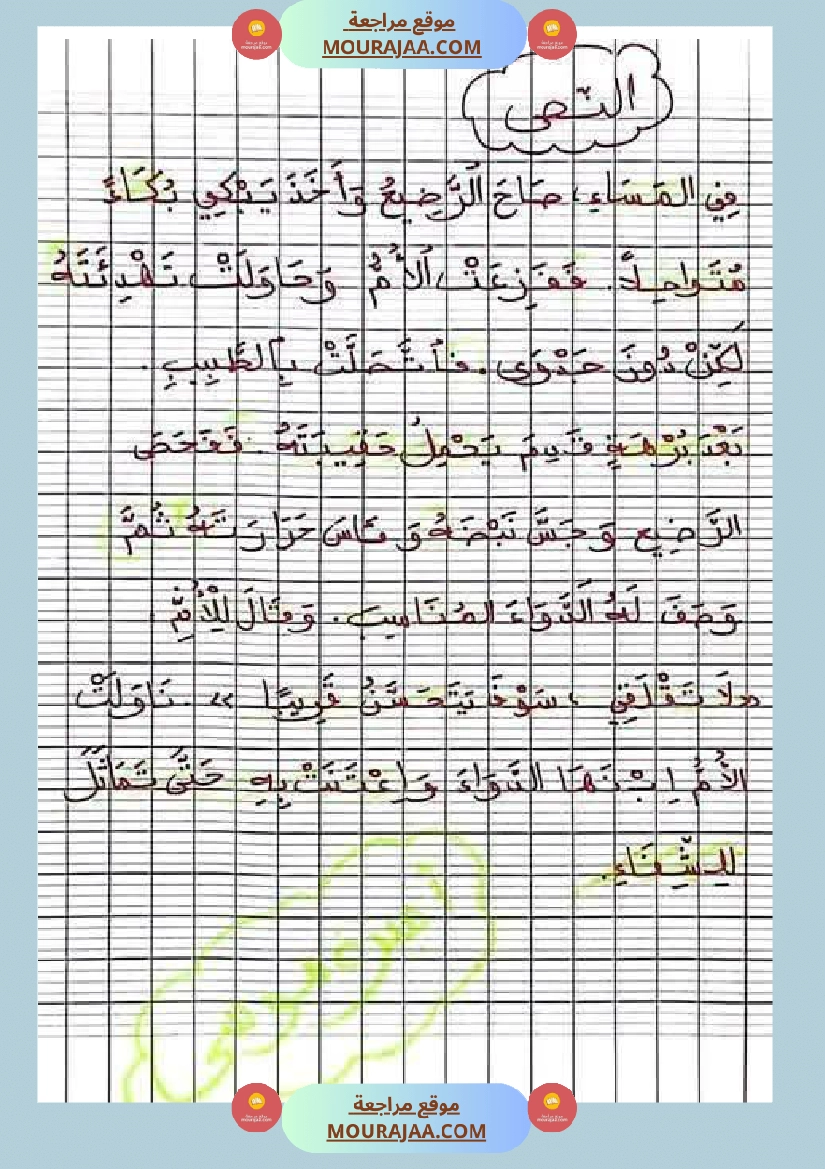 موقع مراجعة
MOURAJAA.COM
النّص
فِي المَسَاءِ، صَاحَ الرَّضِيعُ وَأَخَذَ يَبْكِي بُكَاءً
مُتَواصِلاً. فَفَزِعَتْ الأُمُّ وَحَاوَلَتْ تَهْدِئَتَهُ
لَكِنْ دُونَ جَدْوَى. فَاتَّصَلَتْ بِالطَّبِيبِ.
بَعْدَ بُرْهَةٍ قَدِمَ يَحْمِلُ حَقِيبَتَهُ. فَفَحَصَ
الرَّضِيع وَجَسَّ نَبْضَهُ وَقَاسَ حَرَارَتَهُ ثُمَّ
وَصَفَ لَهُ الدَّوَاءَ المُنَاسِبَ. وَقَالَ لِلْأُمِّ
«لَا تَقْلَقِي، سَوْفَ يَتَحَسَّنُ قَرِيبًا». نَاوَلَتْ
الأُمُّ اِبْنَهَا الدَّوَاءَ وَاِعْتَنَتْ بِهِ حَتَّى تَمَاثَلَ
لِلشِّفَاءِ.
موقع مراجعة
MOURAJAA.COM